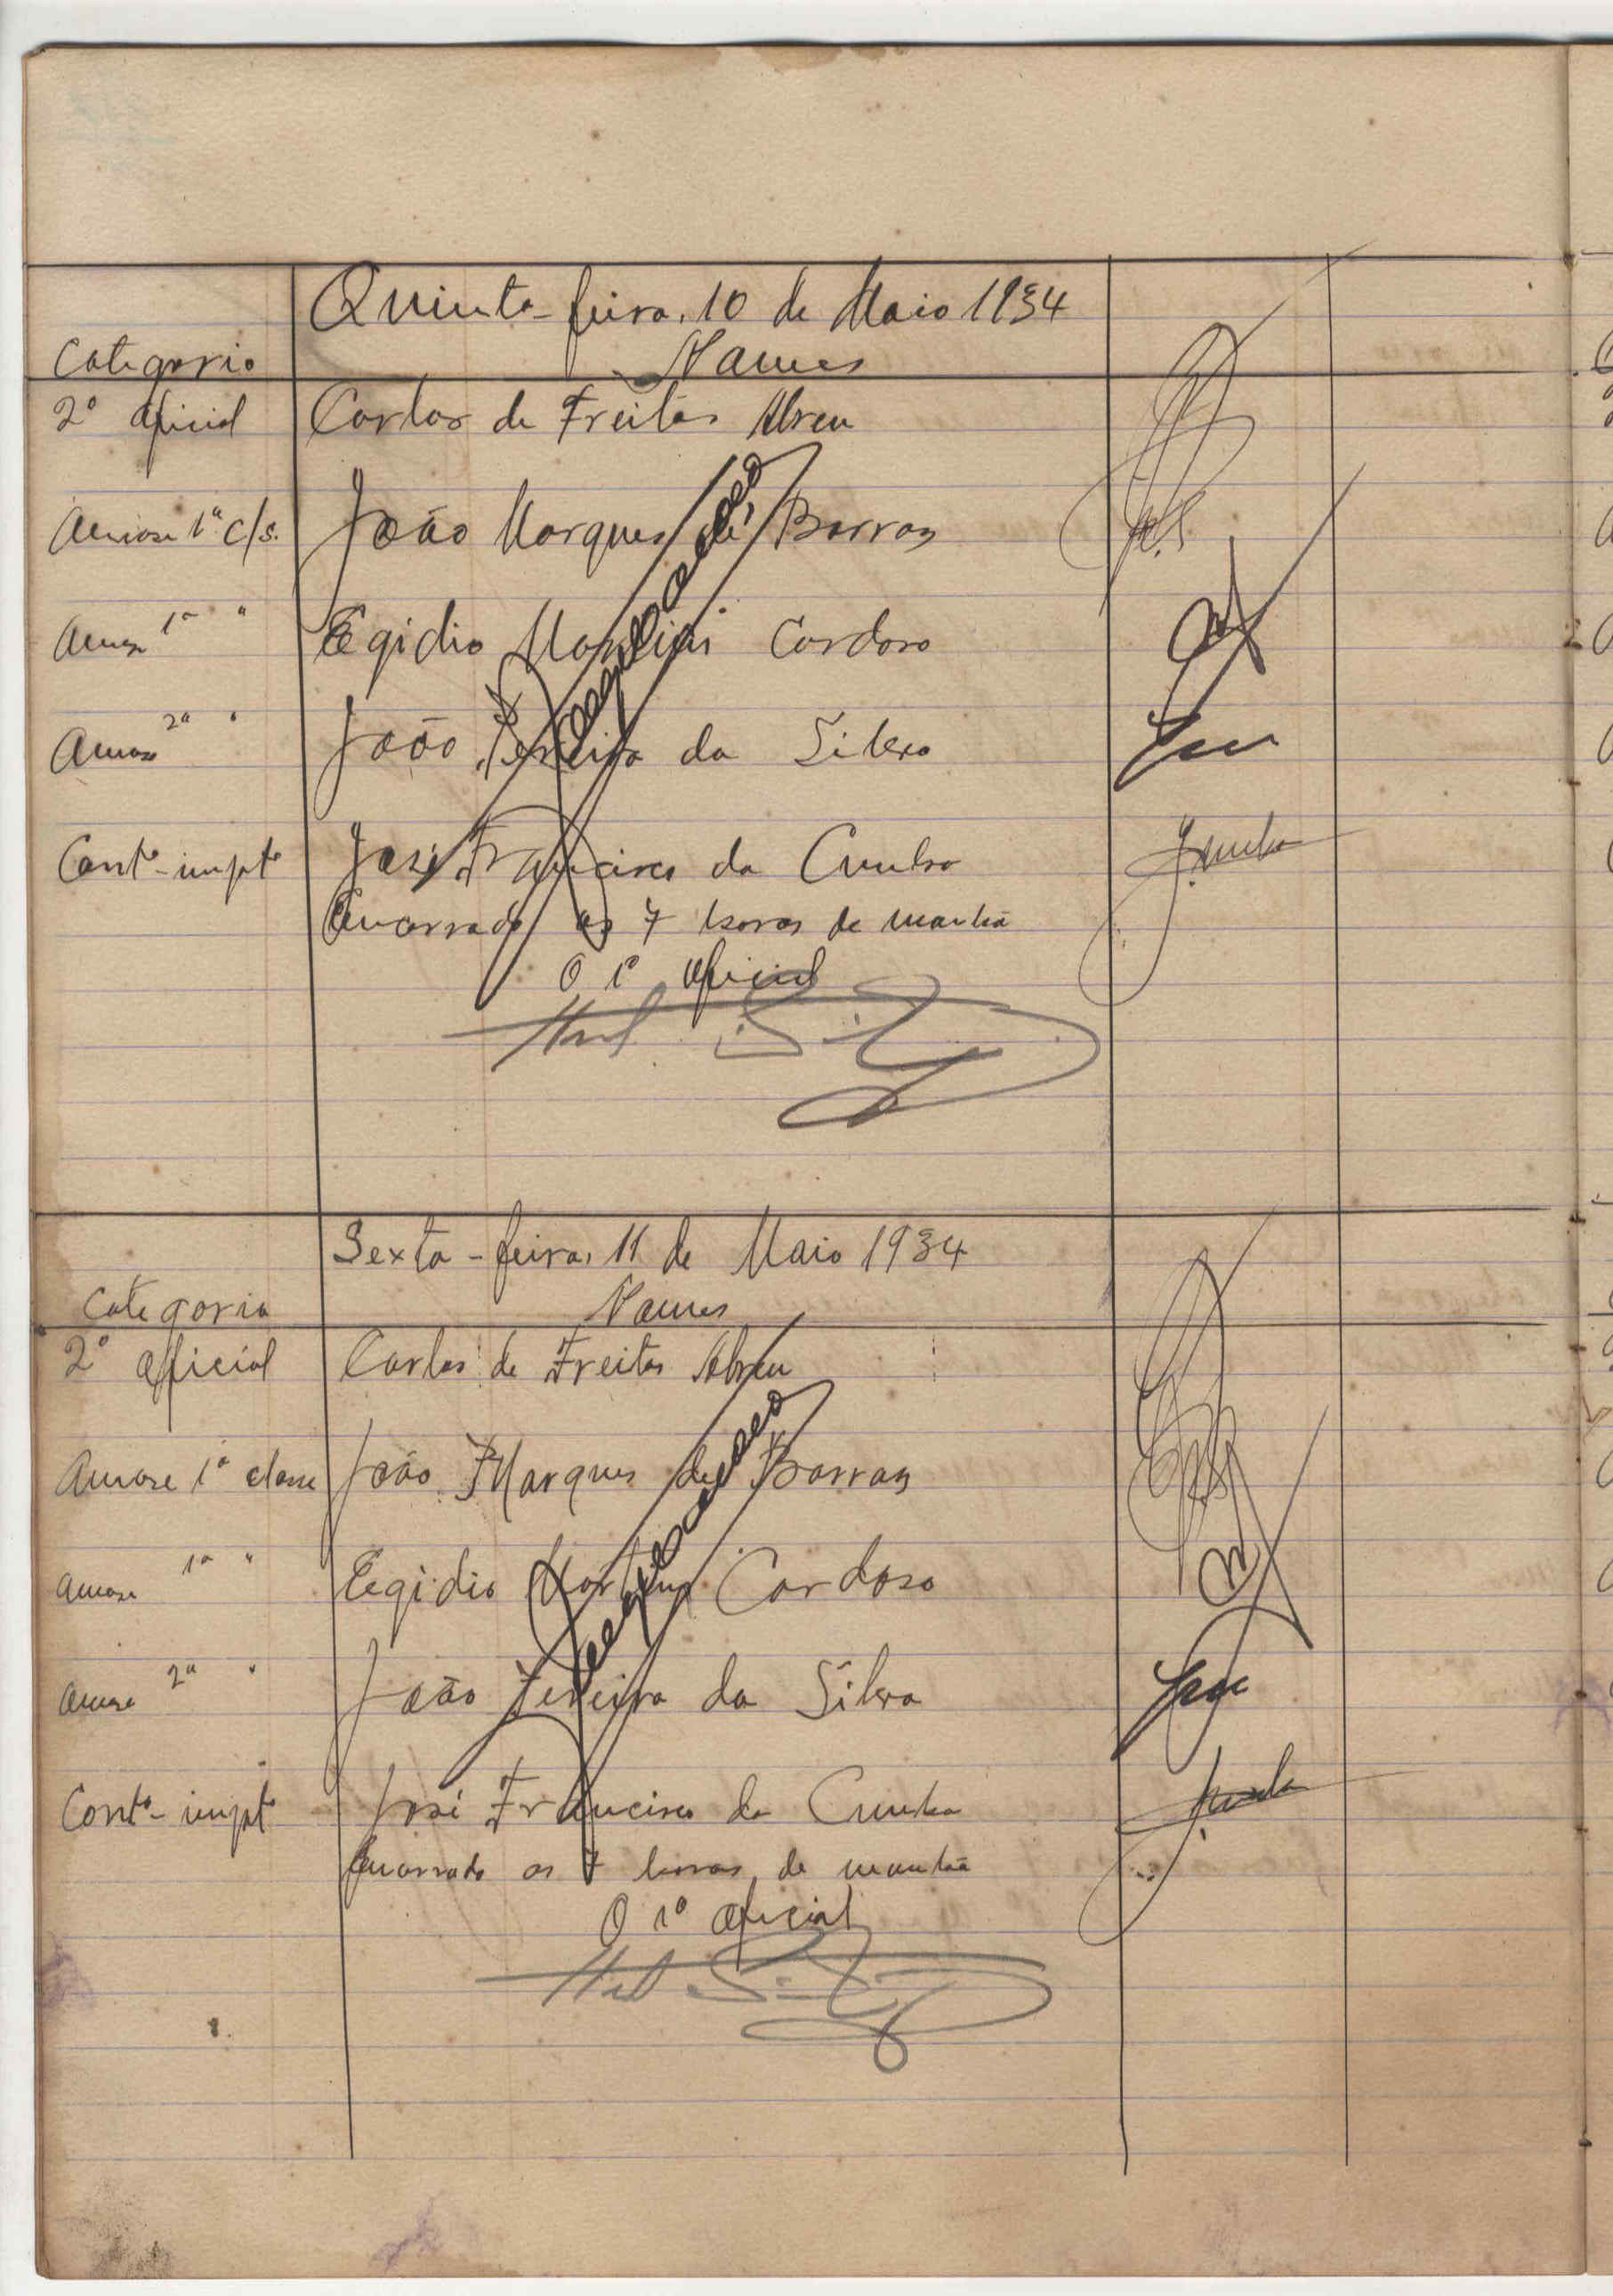 Quinta-feira, 10 de Maio 1934
Categoria Nomes
2º Oficial Carlos de Freitas Abreu
1ª c/s. João Marques de Barros
1ª " Egidio Martins Cardoso
2ª " João Pereira da Silva
Contº-impto José Francisco da Cunha
Encerrado as 7 horas de manhã
O 1º Oficial
Sexta-feira, 11 de Maio 1934
Categoria Nomes
2º Oficial Carlos de Freitas Abreu
1ª classe João Marques de Barros
1ª " Egidio Martins Cardoso
2ª " João Pereira da Silva
Contº-impto José Francisco da Cunha
Encerrado as 7 horas de manhã
O 1º Oficial